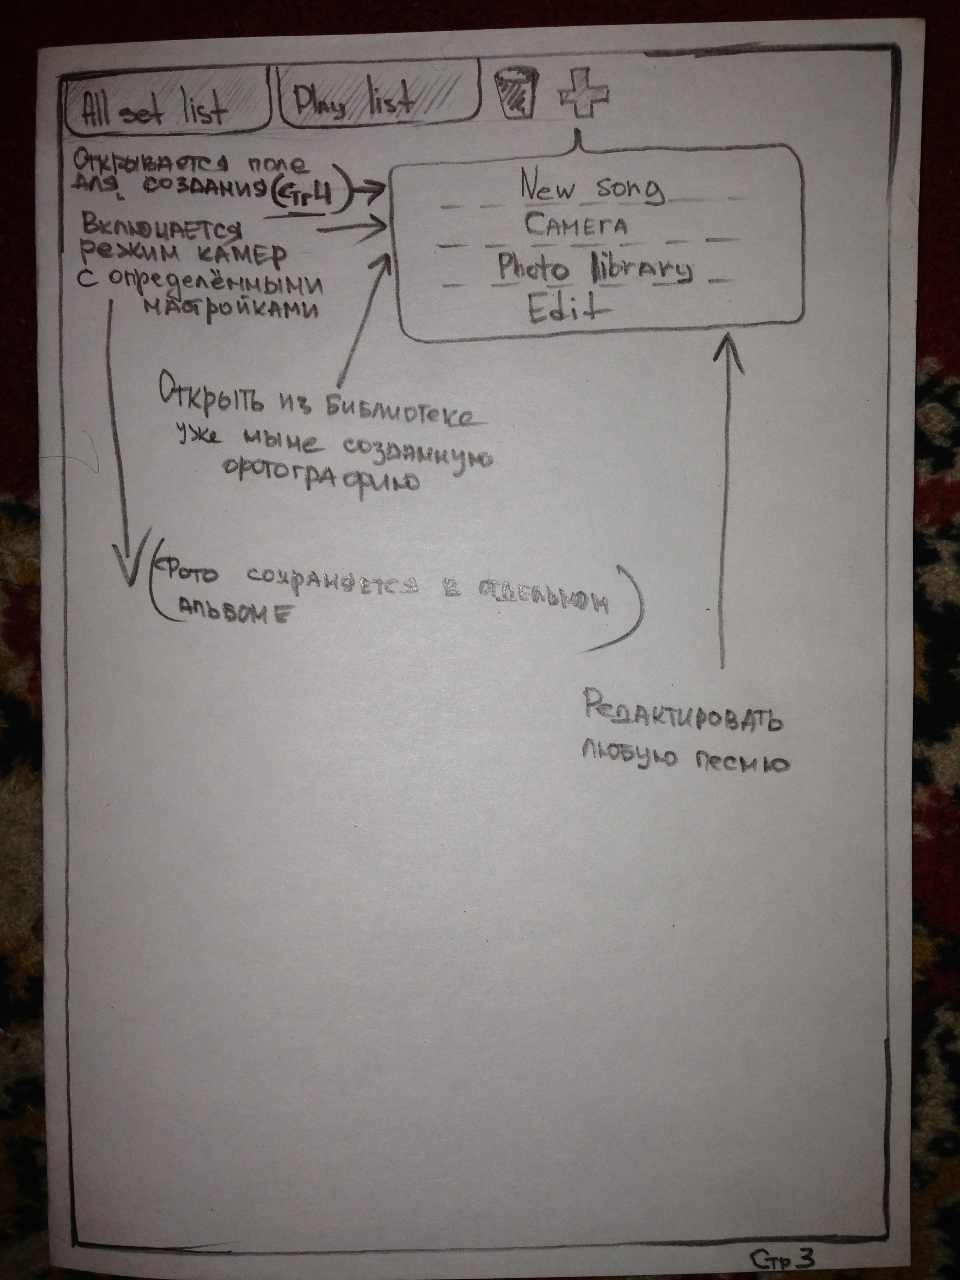 All set list
Play list
Открывается поле
для создания (стр 4)
New song
Включается
режим камер
с определёнными
настройками
Camera
Photo library
Edit
Открыть из библиотеке
уже мыне созданную
фотографию
(Фото сохраняется в отдельном
альбоме)
Редактировать
любую песню
Стр 3